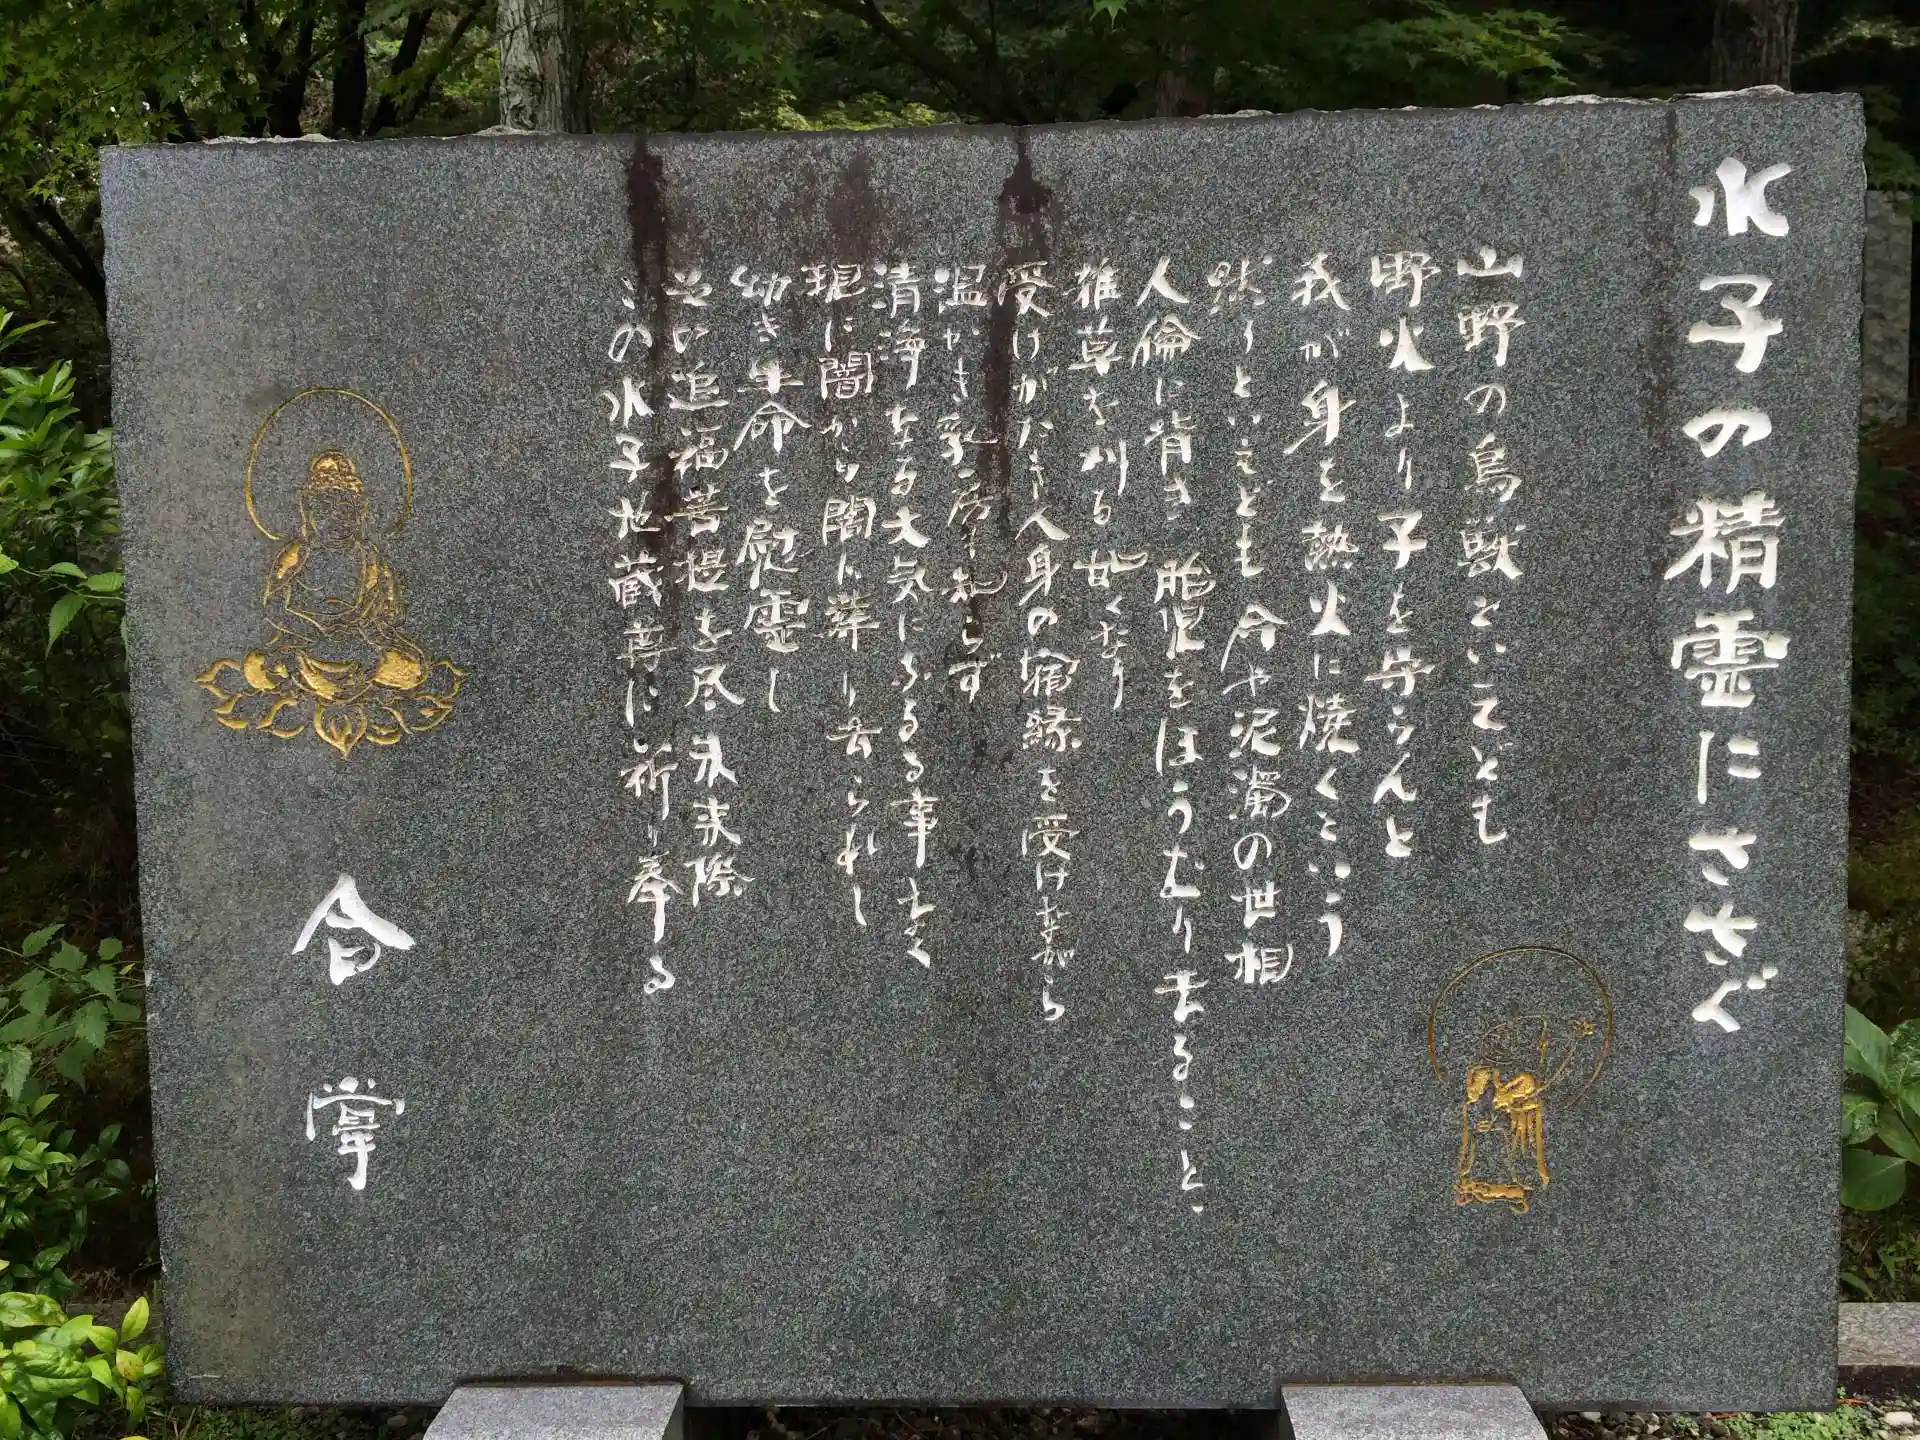 水子の精霊にささぐ
山野の鳥獣といえども
野火より子を守らんと
我が身を熱火に焼くという
然りといえども 今や泥濁の世相
人倫に背き 胎児をほうむり去ること、
雑草を刈る如くなり
受けがたき人身の宿縁を受けながら
温かき乳房も知らず
清浄なる大気にふるる事もなく
現に闇から闇に葬り去られし
幼き生命を慰霊し
追福菩提を尽未来際
この水子地蔵尊に祈り奉る
合掌